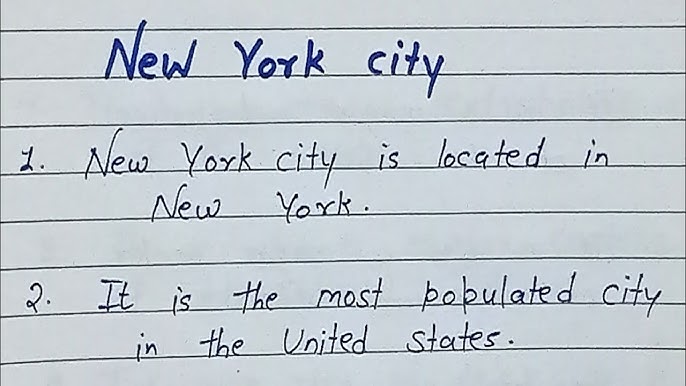 New York city
1. New York city is located in
New York.
2. It is the most populated city
in the United States.